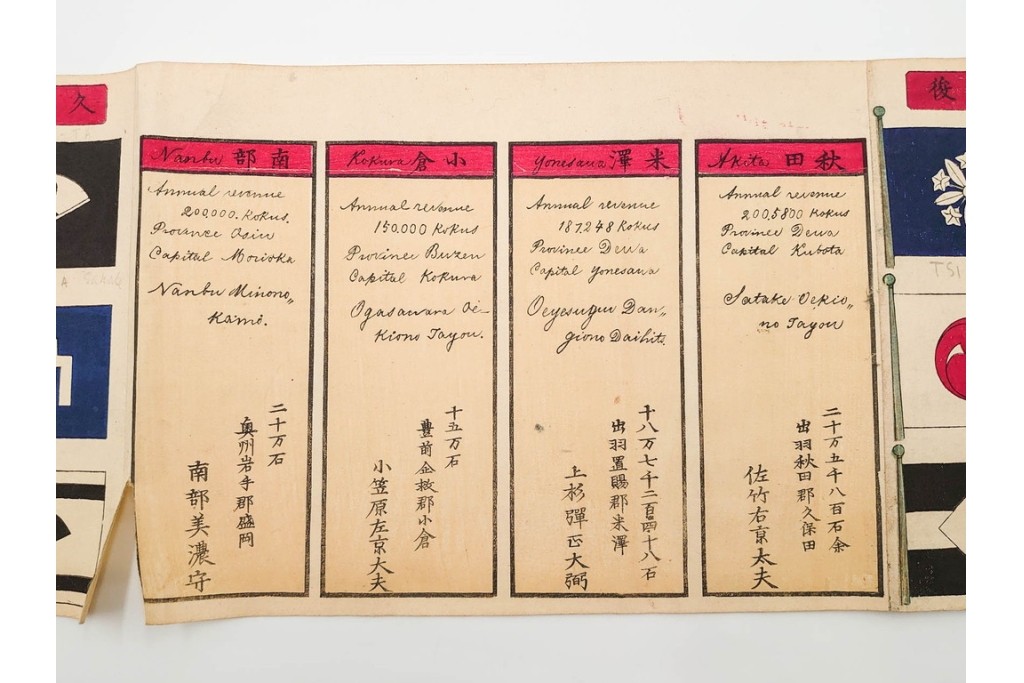 久
Nanbu 南部
Annual revenue
200,000. Kokus.
Province Osiu
Capital Morioka
Nanbu Minono„
Kami.
二十万石
奥州岩手郡盛岡
南部美濃守
Kokura 小倉
Annual revenue
150,000 Kokus
Province Buzen
Capital Kokura
Ogasawara Oe-
Kiono Tayou.
十五万石
豊前企救郡小倉
小笠原左京大夫
Yonesawa 米澤
Annual revenue
187248 Kokus
Province Dewa
Capital Yonesawa
Oeyesugui Dan„
giono Daihits.
十八万七千二百四十八石
出羽置賜郡米澤
上杉彈正大弼
Akita 秋田
Annual revenue
2005800 Kokus
Province Dewa
Capital Kubota
Satake Oekio„
no Tayou
二十万五千八百石余
出羽秋田郡久保田
佐竹右京太夫
後
TSI